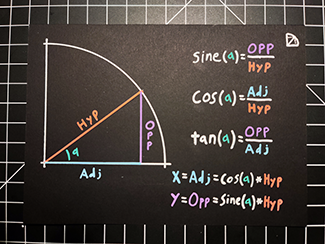 sine(a)=OPP/HYP
cos(a)=Adj/HYP
tan(a)=OPP/Adj
HYP
OPP
a
Adj
X=Adj=cos(a)*HYP
Y=OPP=sine(a)*HYP